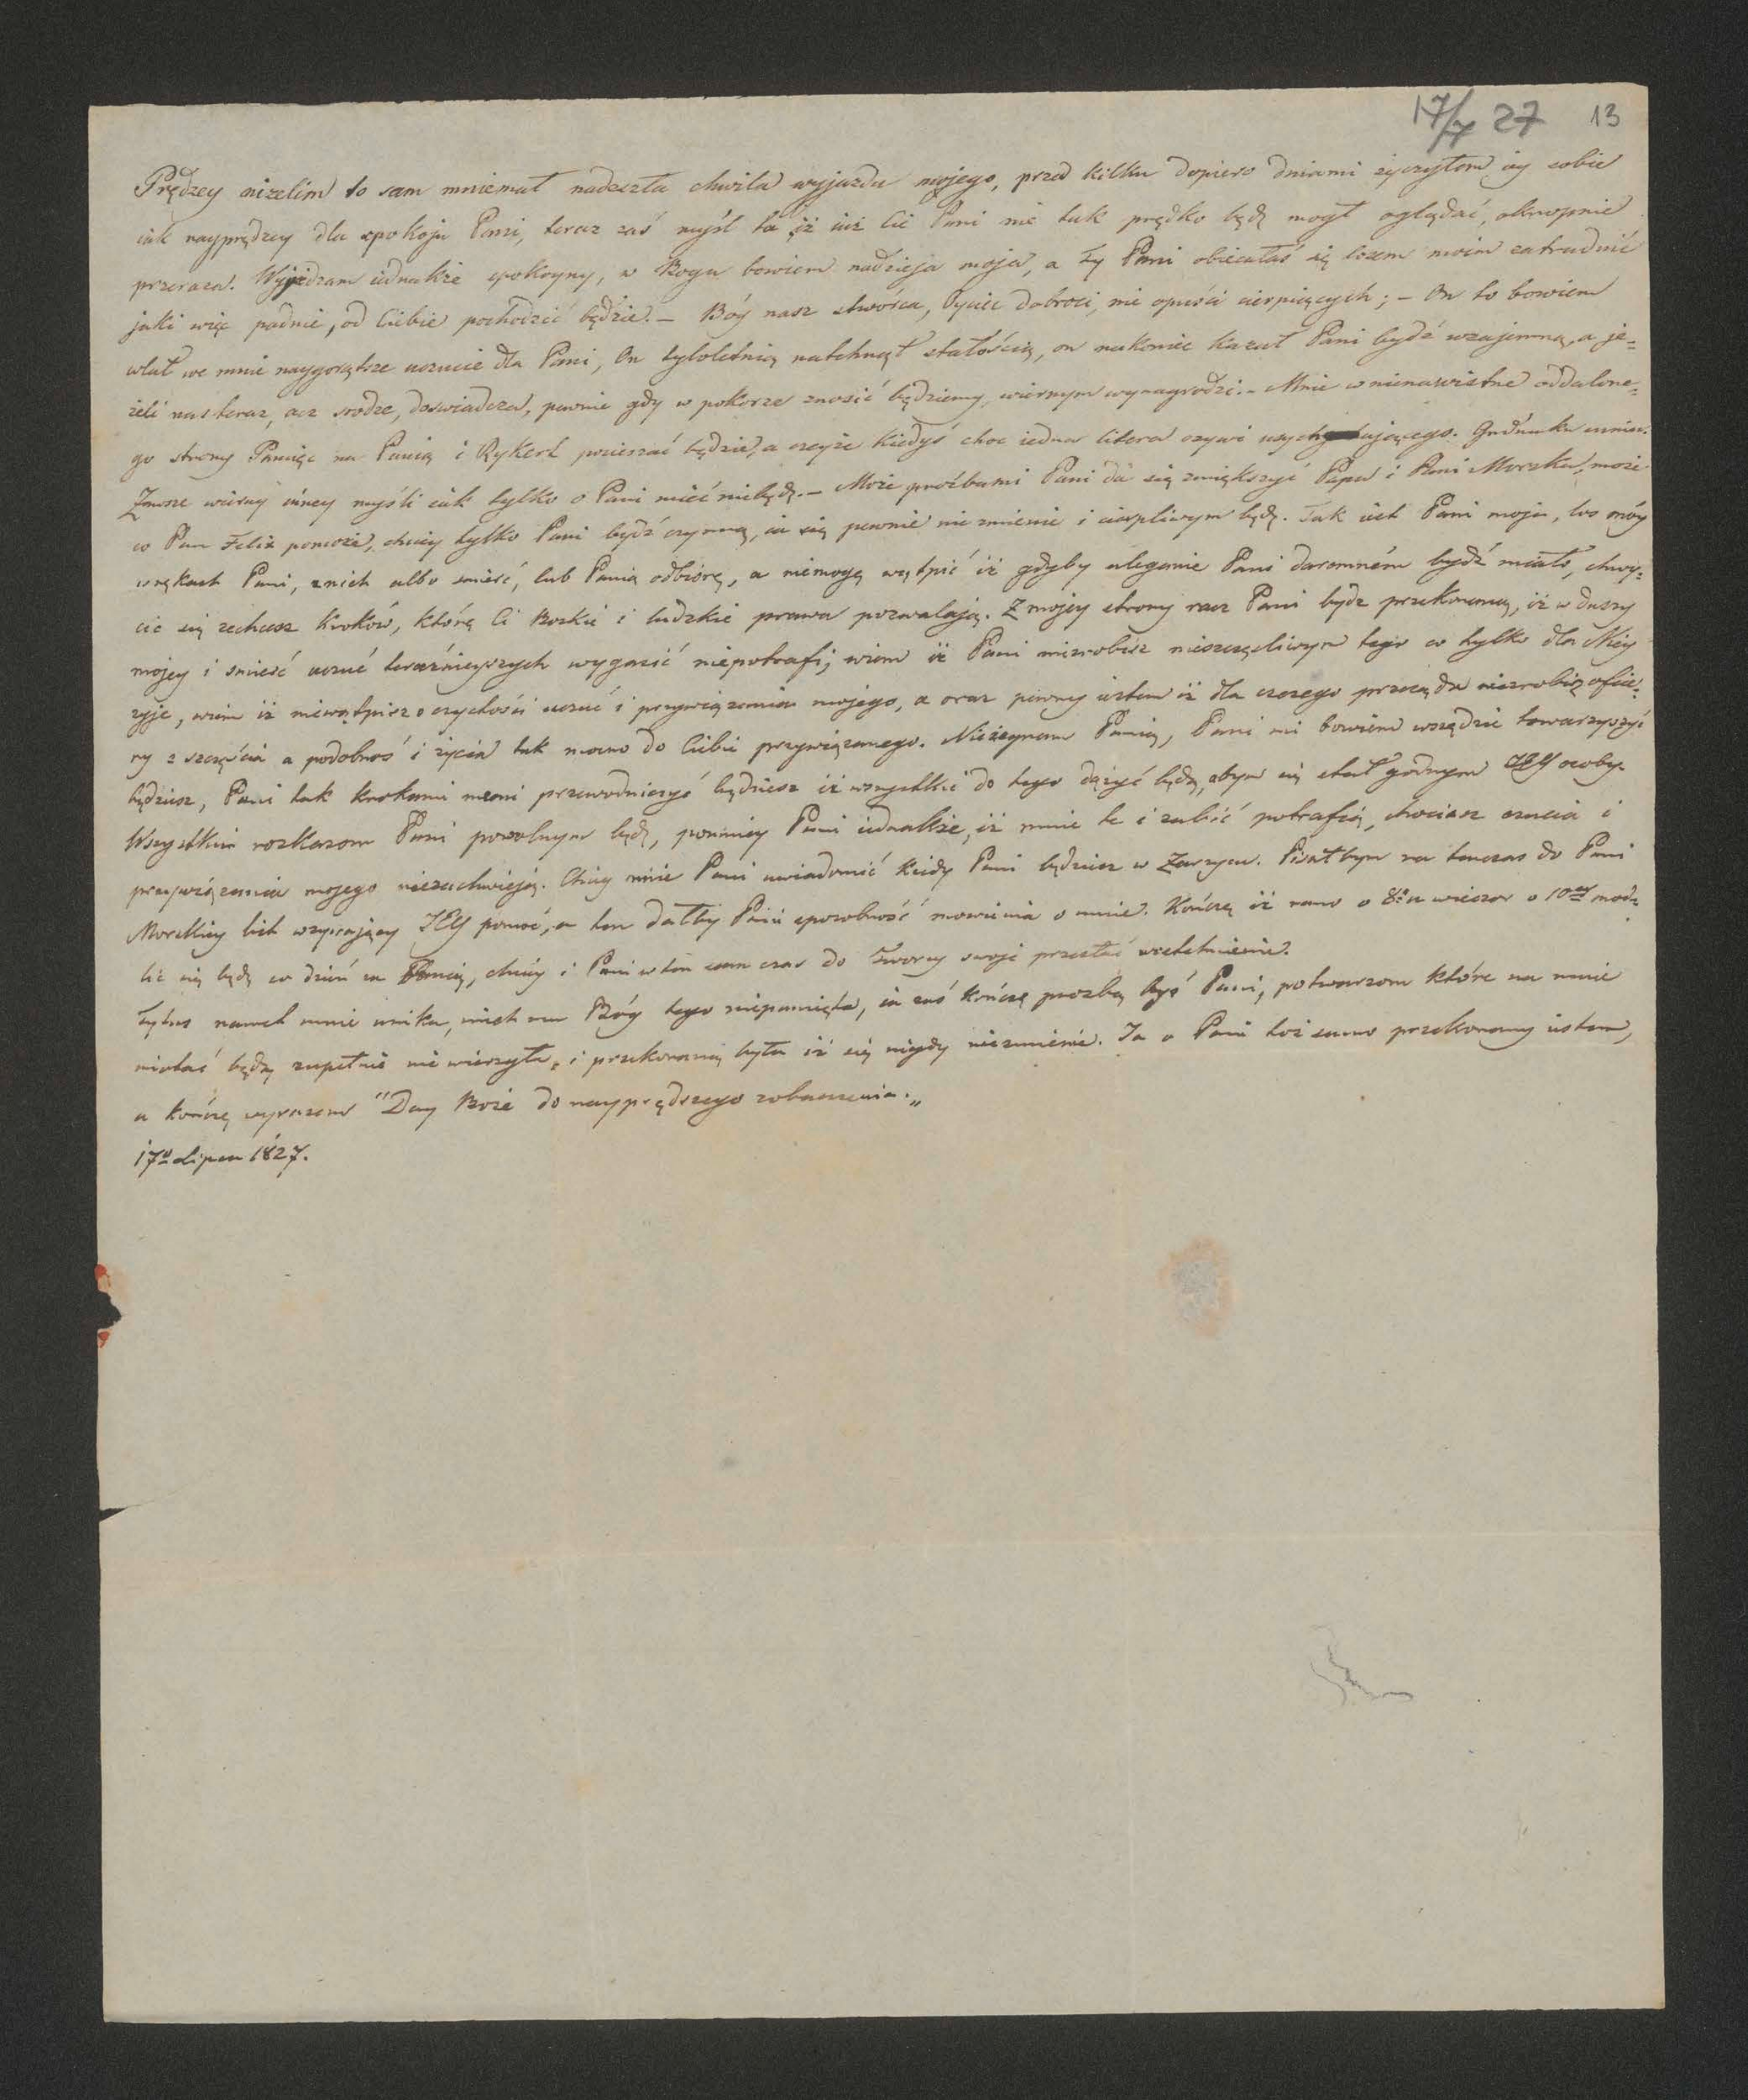 17/7 27 13
Prędzey niżelim to sam mniemał nadeszła chwila wyjazdu mojego, przed kilku dopiero dniami życzyłem iey sobie
iak nayprędzey dla spokoju Pani, teraz zaś myśl ta iż iuż Cię Pani nie tak prędko będę mogł oglądać, okropnie
przeraza. Wyjeżdzam iednakże spokoyny, w Bogu bowiem nadzieja moja, a Ty Pani obiecałaś się losem moim zatrudnić
jaki więc padnie, od Ciebie pochodzić będzie. – Bóg nasz stwórca, Oyciec dobroci, nie opuści cierpiących; – On to bowiem
wlał we mnie naygorętsze uczucie dla Pani, On tyloletnią natchnął stałością, on nakoniec kazał Pani bydź wzajemną, a je=
żeli nas teraz, acz srodze, doświadcza, pewnie gdy w pokorze znosić będziemy, wiernym wynagrodzi. – Mnie w nienawistne oddalone=
go strony Pamięć na Panią i Rykert pocieszać będzie, a czyże kiedyś choc iedna litera ozywi usychającego. Gatunku
Zawsze wierny inney myśli iak tylko o Pani mieć niebędę. – Może prośbami Pani da się zmiększyć Papa i Pani Morska, może
co Pan Felix pomoże, chciey tylko Pani bydź czynną, ia się pewnie nie zmienie i cierpliwym będę. Tak iest Pani moja, los móy
w rękach Pani, z nich albo smierć, lub Panią odbiorę, a niemogę wątpić iż gdyby uleganie Pani daremném bydź miało, chwy=
cić się zechcesz kroków, które Ci Bozkie i ludzkie prawa pozwalają. Z mojey strony racz Pani bydz przekonaną, iż w duszy
mojey i smierć uczuć teraźnieyszych wygasić niepotrafi; wiem iż Pani niezrobisz nieszczęśliwym tego co tylko dla Niey
zyje, wiem iż niewątpisz o czystości uczuć i przywiązania mojego, a oraz pewny iestem iż dla czczego przesądu niezrobisz ofia=
ry z szczęścia a podobnoś i życia tak mocno do Ciebie przywiązanego. Nieżegnam Panią, Pani mi bowiem wszędzie towarzyszyć
będziesz, Pani tak krokami memi przewodniczyć będziesz iż wszystkie do tego dążyć będą, abym się stał godnym JEY osoby.
Wszystkim rozkazom Pani powolnym będę, pomniey Pani iednakże, iż mnie te i zabić potrafią, chociasz czucia i
przywiązania mojego niezachwieją. Chciey mnie Pani uwiadomić kiedy Pani będziesz w Zarzyczu. Pisałbym na tenczas do Pani
Morskiey list wzywający JEY pomoc, a ten dałby Pani sposobność mowienia o mnie. Kończę iż rano o 8ey a wieczor o 10ey mod=
lić się będę co dzień za Panią, chciey i Pani w ten sam czas do Tworcy swoje przesłać westchnienie.
Tytus nawet mnie unika, niech mu Bóg tego niepamięta, ia zaś kończę prozbą byś Pani, potwarzom które na mnie
miotać będą zupełnie nie wierzyła, i przekonaną była iż się nigdy niezmienie. Ja o Pani toż samo przekonany iestem,
a kończę wyrazem "Day Boże do nayprędszego zobaczenia.„
17o Lipca 1827.